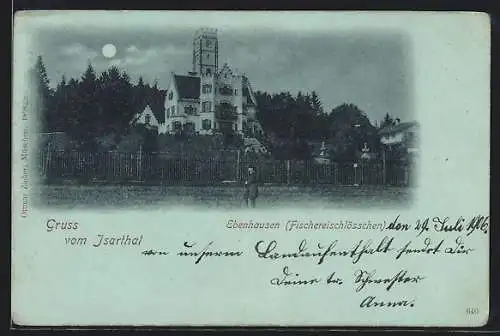 Gruss
vom Isarthal
Ebenhausen (Fischereischlösschen) den 29. Juli 1906.
von unserm Landaufenthalt sendet Dir
Deine tr. Schwester
Anna.
Ottmar Zieher, München.
640